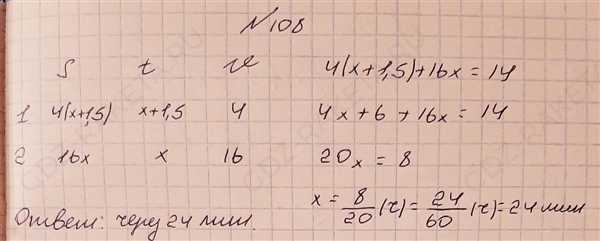 N108
S t v
1 4(x+1,5) x+1,5 4
2 16x x 16
Ответ: через 24 мин.
4(x+1,5)+16x=14
4x+6+16x=14
20x=8
x=8/20(ч)=24/60(ч)=24 мин